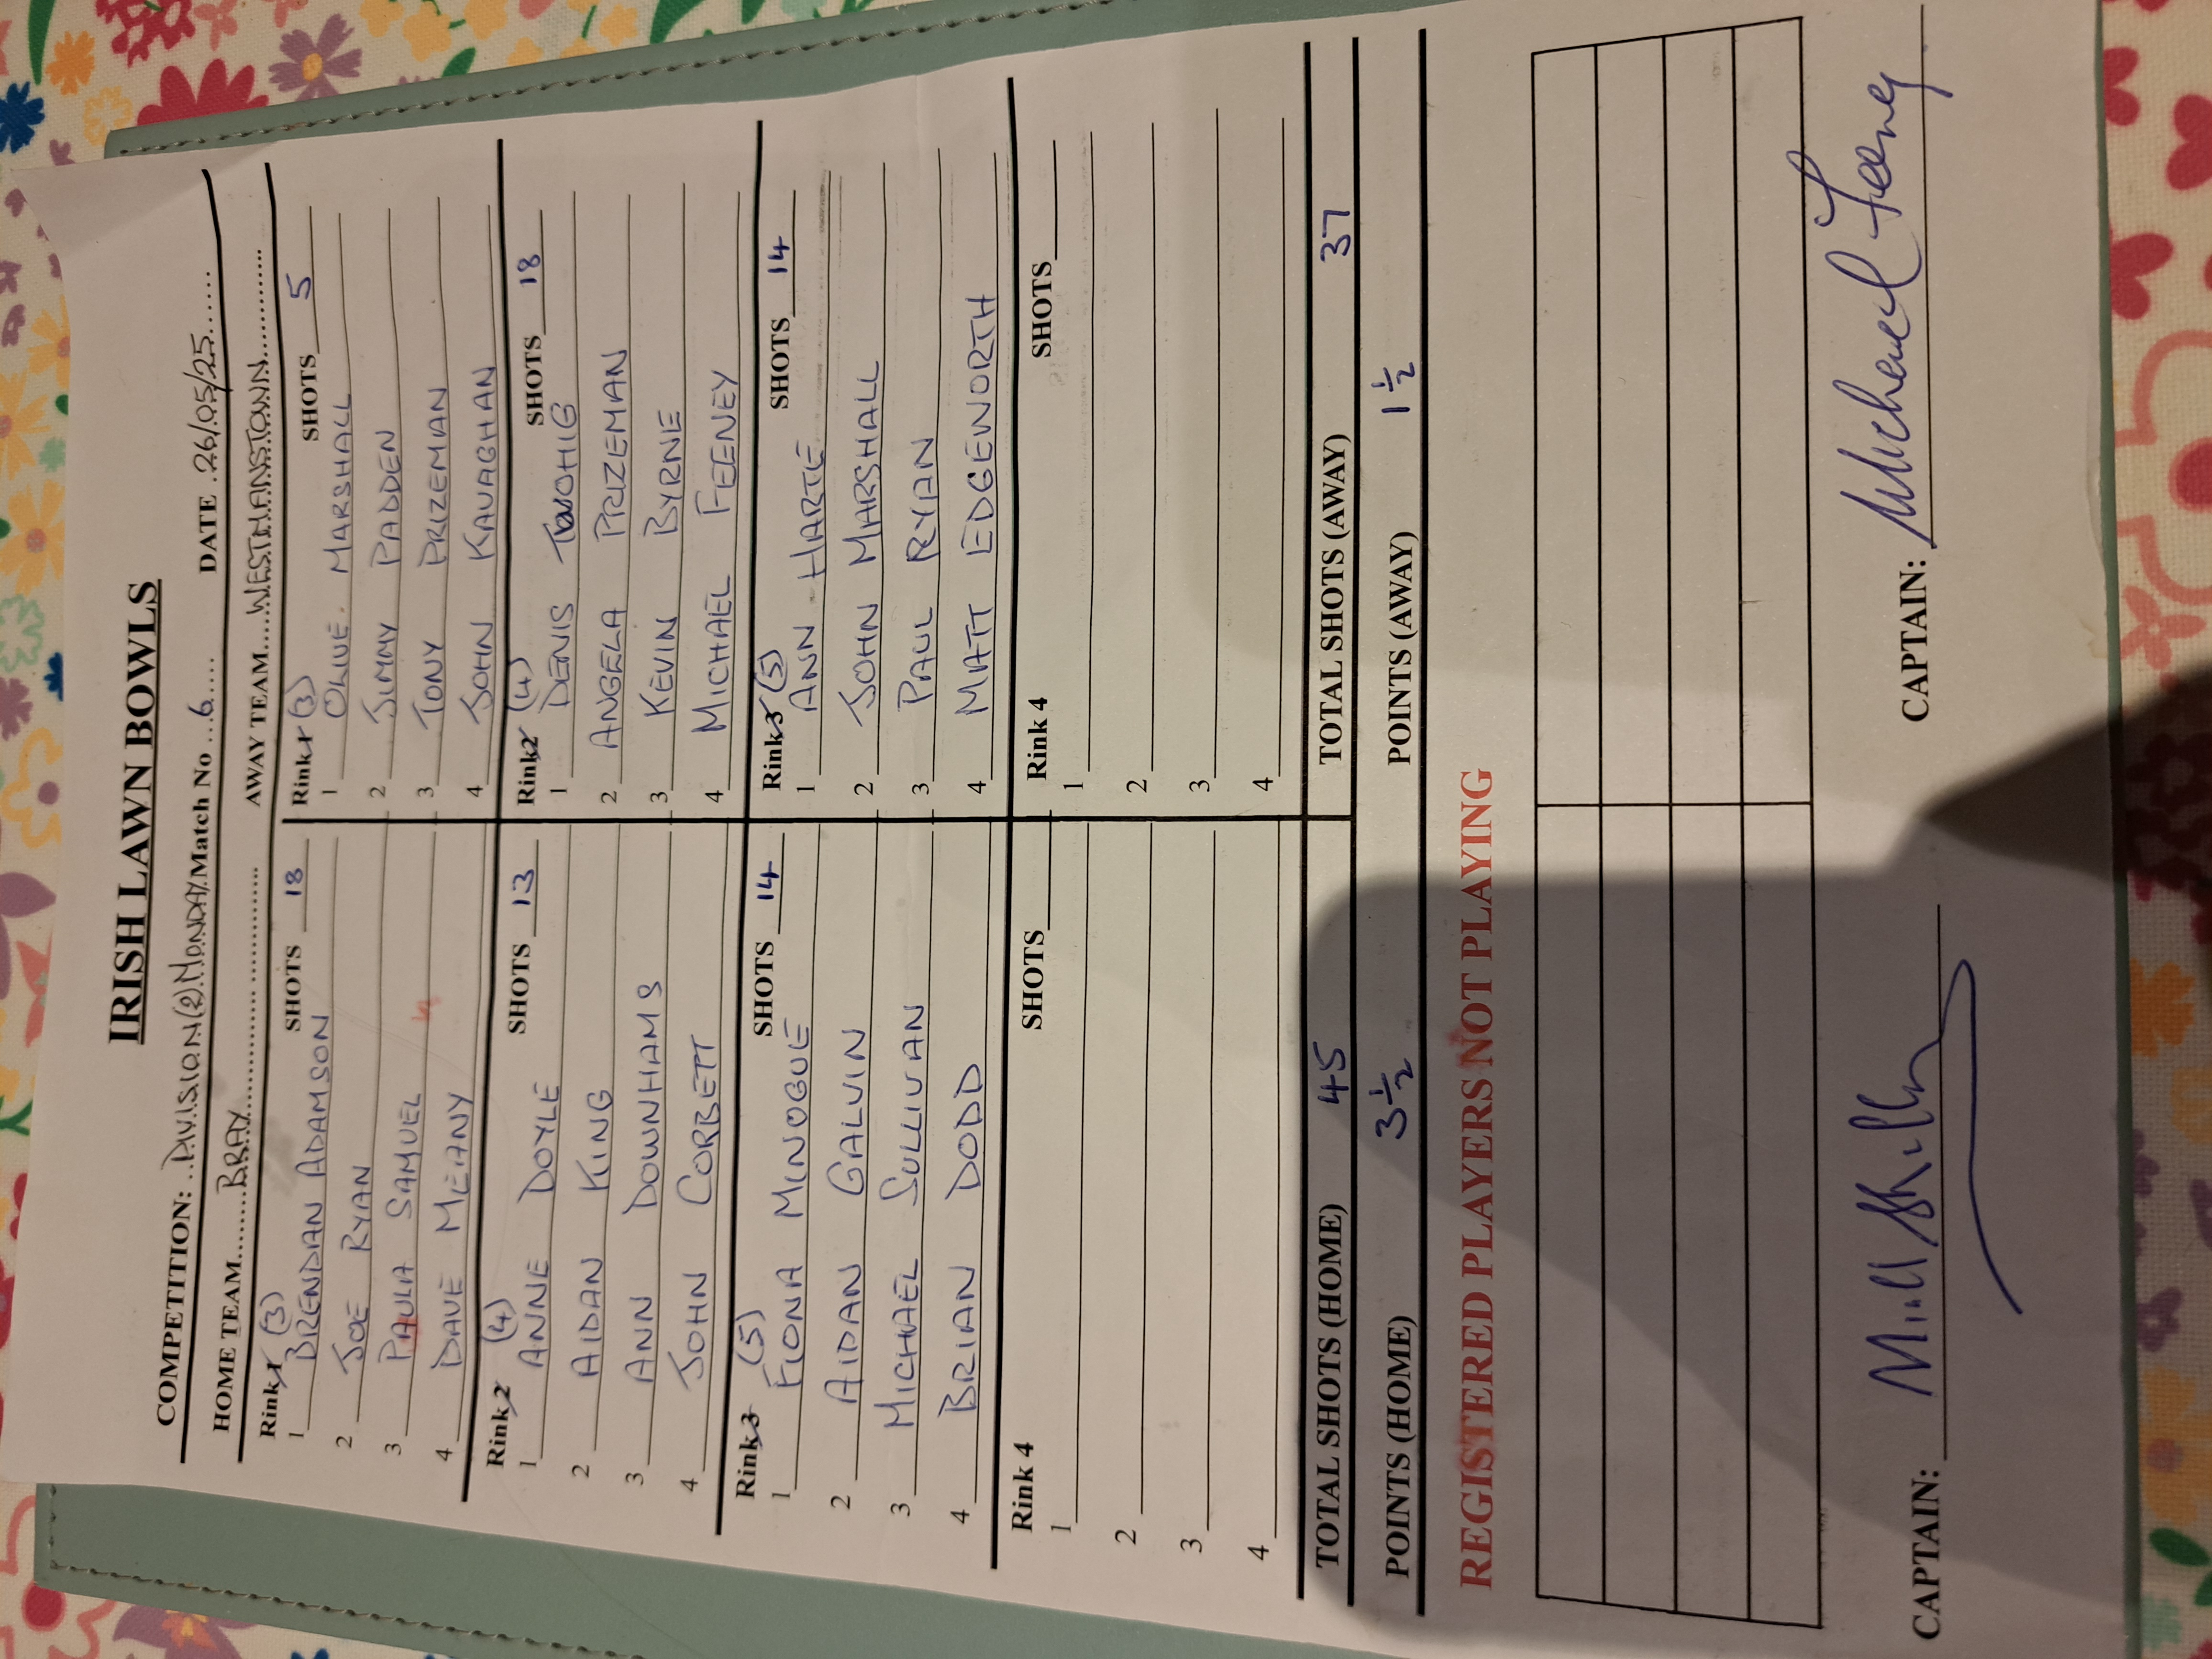 IRISH LAWN BOWLS
COMPETITION: DIVISION (2) MONDAY Match No 6 DATE 26/05/25
HOME TEAM BRAY AWAY TEAM WESTMANSTOWN
Rink 1 (3) SHOTS 18
1 BRENDAN ADAMSON
2 JOE RYAN
3 PAULA SAMUEL
4 DAVE MEANY
Rink 1 (3) SHOTS 5
1 OLIVE MARSHALL
2 JIMMY PADDEN
3 TONY PRIZEMAN
4 JOHN KAVAGHAN
Rink 2 (4) SHOTS 13
1 ANNE DOYLE
2 AIDAN KING
3 ANN DOWNHAMS
4 JOHN CORBETT
Rink 2 (4) SHOTS 18
1 DENIS TWOHIG
2 ANGELA PRIZEMAN
3 KEVIN BYRNE
4 MICHAEL FEENEY
Rink 3 (5) SHOTS 14
1 FIONA MINOGUE
2 AIDAN GALVIN
3 MICHAEL SULLIVAN
4 BRIAN DODD
Rink 3 (5) SHOTS 14
1 ANN HARTE
2 JOHN MARSHALL
3 PAUL RYAN
4 MATT EDGEWORTH
Rink 4 SHOTS
1
2
3
4
Rink 4 SHOTS
1
2
3
4
TOTAL SHOTS (HOME) 45 TOTAL SHOTS (AWAY) 37
POINTS (HOME) 3½ POINTS (AWAY) 1½
REGISTERED PLAYERS NOT PLAYING
CAPTAIN: CAPTAIN: Micheael Feeney